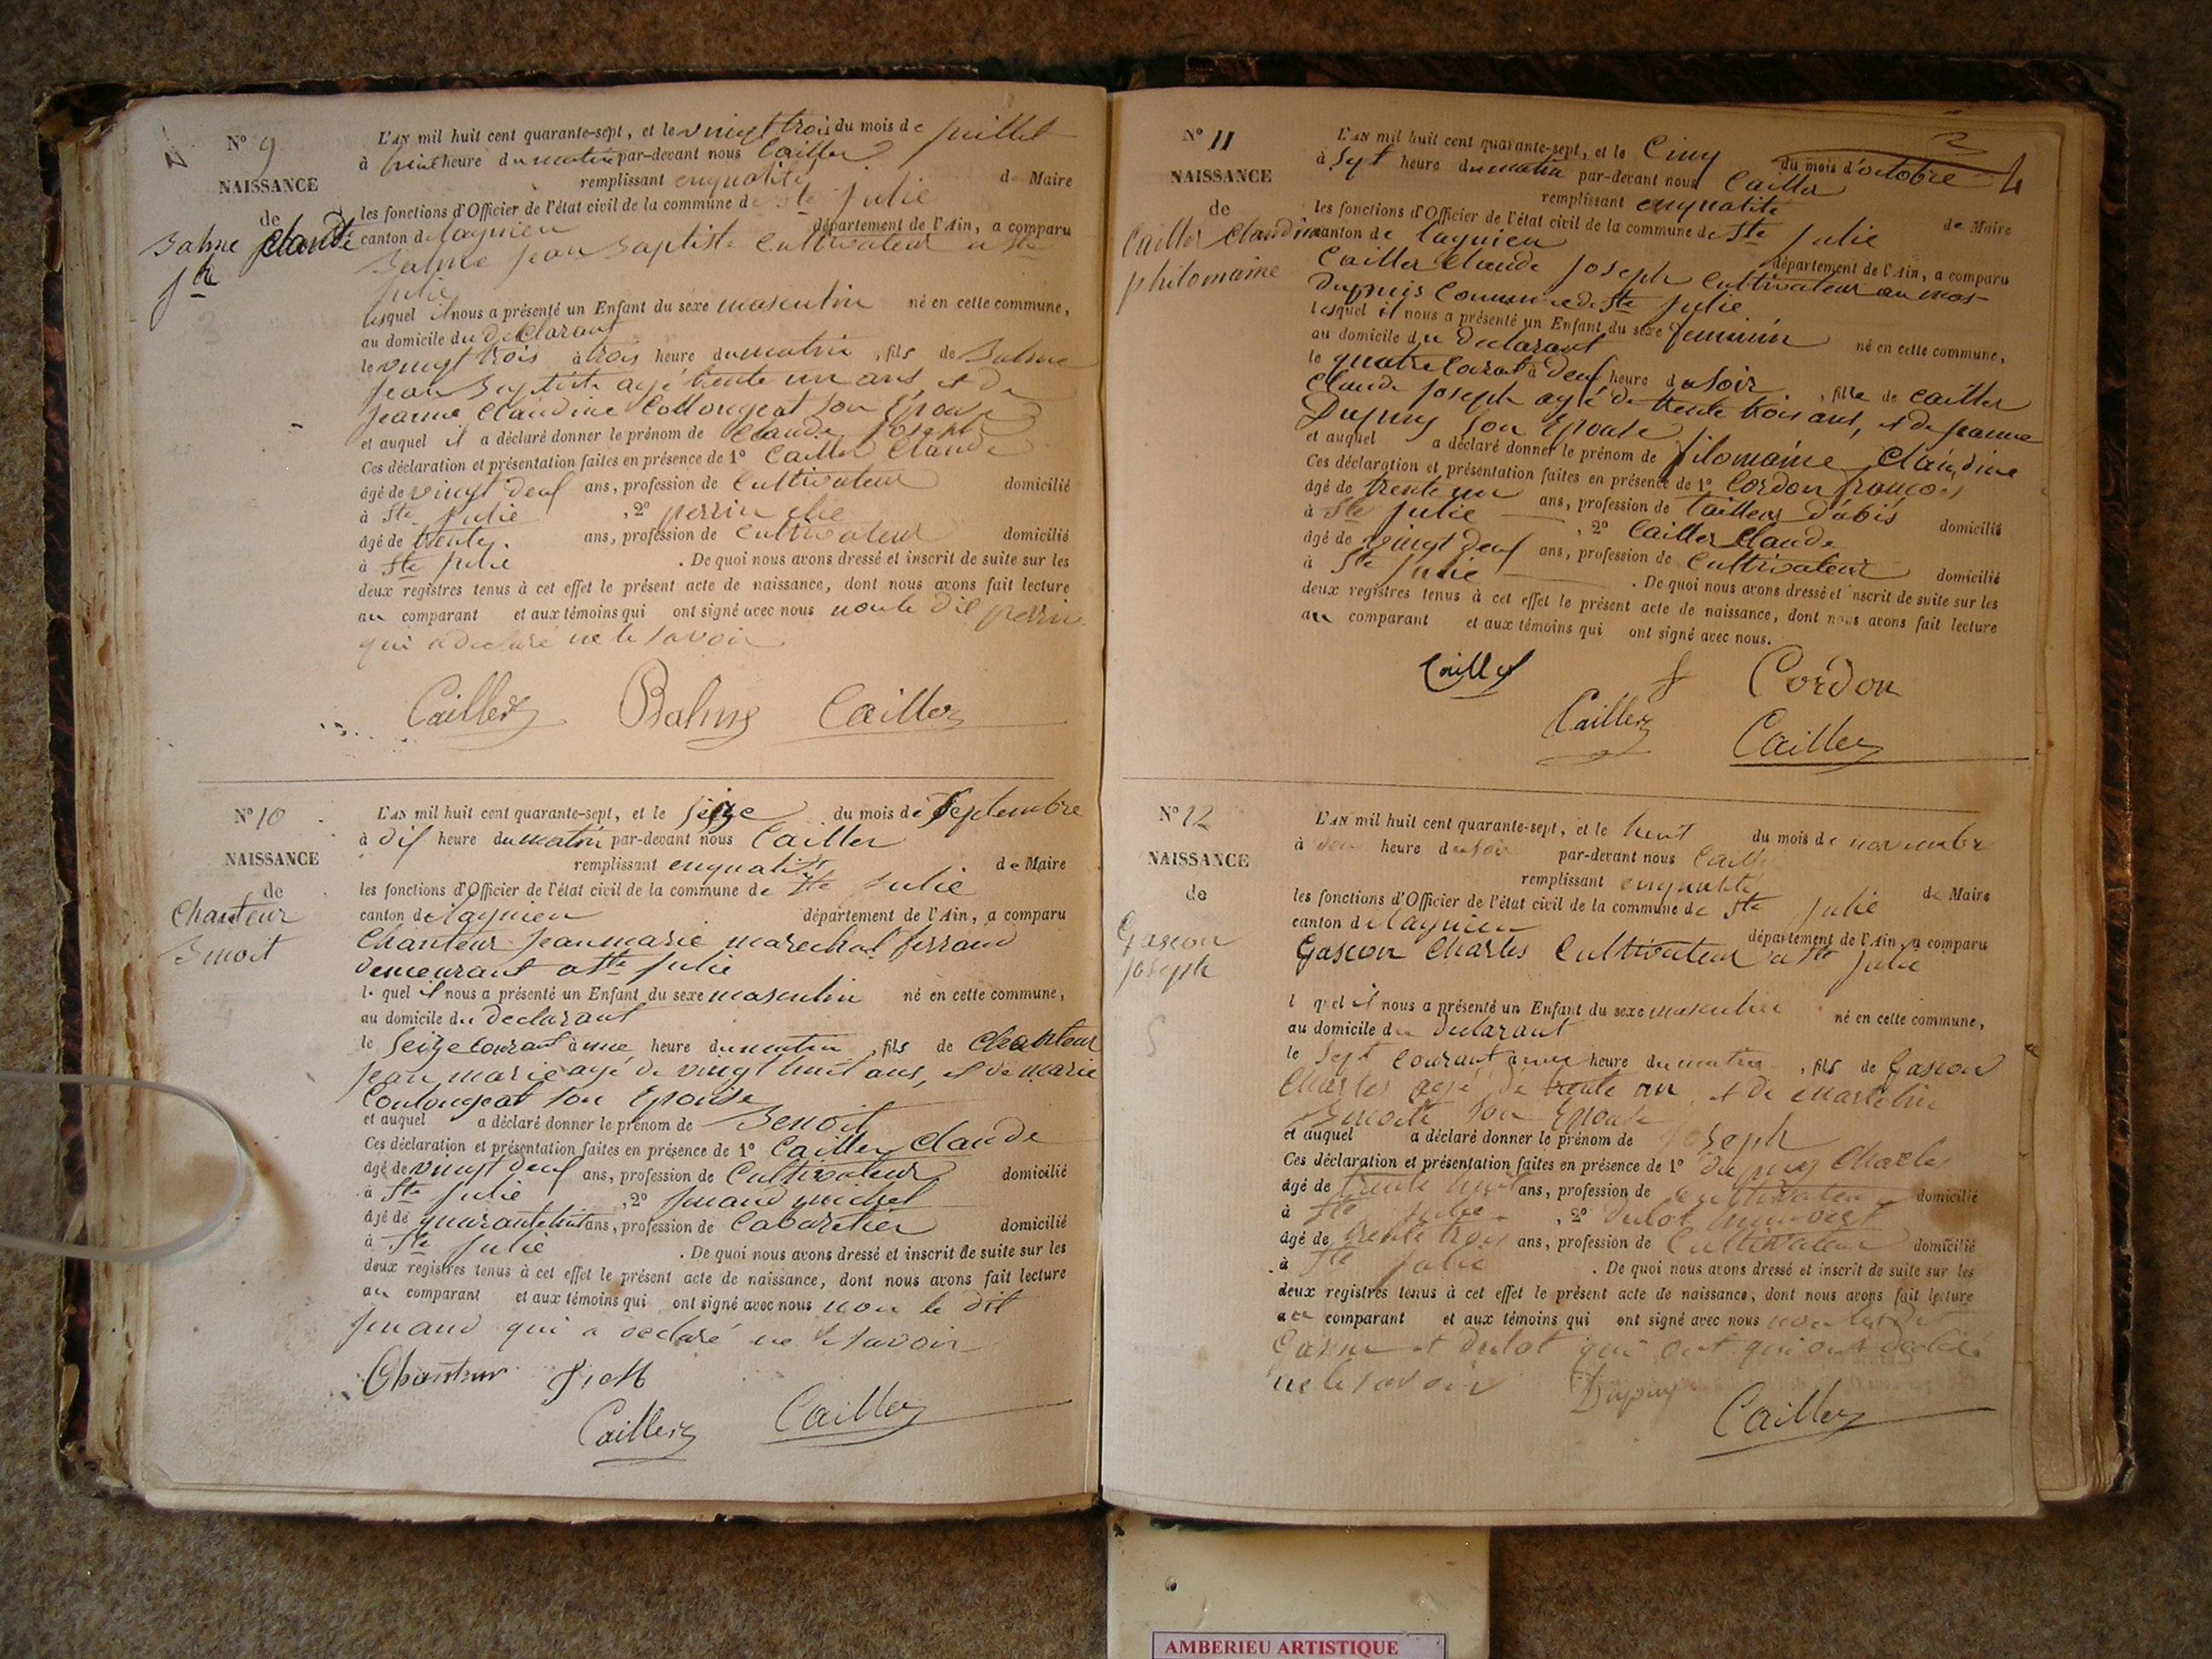 N° 9
NAISSANCE
de
Balme Claude
Jh
L'AN mil huit cent quarante-sept, et le vingt trois du mois de juillet
à huit heure du matin par-devant nous Cailler
remplissant enqualité de Maire
les fonctions d'Officier de l'état civil de la commune de Ste julie
canton de lagnieu département de l'Ain, a comparu
Balme jean Baptiste Cultivateur a Ste
julie
lesquel il nous a présenté un Enfant du sexe masculin né en cette commune,
au domicile du declarant
le vingt trois à trois heure du matin, fils de Balme
jean Baptiste agé trente un ans, et de
jeanne Claudine Collongeat son Epouse
et auquel il a déclaré donner le prénom de Claude joseph
Ces déclaration et présentation faites en présence de 1° Cailler Claude
âgé de vingt deuf ans, profession de Cultivateur domicilié
à Ste julie, 2° perrin
âgé de trente ans, profession de Cultivateur domicilié
à Ste julie. De quoi nous avons dressé et inscrit de suite sur les
deux registres tenus à cet effet le présent acte de naissance, dont nous avons fait lecture
au comparant et aux témoins qui ont signé avec nous non le dit perrin
qui a declaré ne le savoir
Cailler Balme Cailler
N° 10
NAISSANCE
de
Chanteur
Benoit
L'AN mil huit cent quarante-sept, et le seize du mois de Septembre
à dif heure du matin par-devant nous Cailler
remplissant enqualité de Maire
les fonctions d'Officier de l'état civil de la commune de Ste julie
canton de lagnieu département de l'Ain, a comparu
Chanteur jeanmarie marechal ferrand
demeurant a Ste julie
lequel il nous a présenté un Enfant du sexe masculin né en cette commune,
au domicile du declarant
le seize courant à une heure du matin, fils de Chanteur
jean marie agé de vingt huit ans, et de marie
Coulongeat son Epouse
et auquel a déclaré donner le prénom de Benoit
Ces déclaration et présentation faites en présence de 1° Cailler Claude
âgé de vingt deuf ans, profession de Cultivateur domicilié
à Ste julie, 2° junand michel
âgé de quarante huit ans, profession de Cabaretier domicilié
à Ste julie. De quoi nous avons dressé et inscrit de suite sur les
deux registres tenus à cet effet le présent acte de naissance, dont nous avons fait lecture
au comparant et aux témoins qui ont signé avec nous non le dit
junand qui a declaré ne le savoir
Chanteur
Cailler Cailler
N° 11
NAISSANCE
de
Cailler Claudine
philomaine
3
4
L'AN mil huit cent quarante-sept, et le Cinq du mois d'octobre
à sept heure du matin par-devant nous Cailler
remplissant enqualité de Maire
les fonctions d'Officier de l'état civil de la commune de Ste julie
canton de lagnieu département de l'Ain, a comparu
Cailler Claude joseph Cultivateur au mas
Dupuis Commune de Ste julie
lesquel il nous a présenté un Enfant du sexe feminin né en cette commune,
au domicile du declarant
le quatre courant à deuf heure du soir, fille de Cailler
Claude joseph agé de trente trois ans, et de jeanne
Dupuy son Epouse
et auquel a déclaré donner le prénom de filomaine Claudine
Ces déclaration et présentation faites en présence de 1° Cordon françois
âgé de trente un ans, profession de tailleur d'abis domicilié
à Ste julie, 2° Cailler Claude
âgé de vingt deuf ans, profession de Cultivateur domicilié
à Ste julie. De quoi nous avons dressé et inscrit de suite sur les
deux registres tenus à cet effet le présent acte de naissance, dont nous avons fait lecture
au comparant et aux témoins qui ont signé avec nous.
Cailler f Cordon
Cailler Cailler
N° 12
NAISSANCE
de
Gascon
joseph
L'AN mil huit cent quarante-sept, et le huit du mois de novembre
à heure du soir par-devant nous Cailler
remplissant enqualité de Maire
les fonctions d'Officier de l'état civil de la commune de Ste julie
canton de lagnieu département de l'Ain, a comparu
Gascon Charles Cultivateur a Ste julie
lquel il nous a présenté un Enfant du sexe masculin né en cette commune,
au domicile du declarant
le sept courant à une heure du matin, fils de Gascon
Charles agé de trente un, et de marcelin
Benoite son Epouse
et auquel a déclaré donner le prénom de joseph
Ces déclaration et présentation faites en présence de 1° Dupuy Charles
âgé de trente huit ans, profession de cultivateur domicilié
à Ste julie, 2° dulot
âgé de trente trois ans, profession de Cultivateur domicilié
à Ste julie. De quoi nous avons dressé et inscrit de suite sur les
deux registres tenus à cet effet le présent acte de naissance, dont nous avons fait lecture
au comparant et aux témoins qui ont signé avec nous non les dit
Gascon et dulot qui ont qui ont declaré
ne le savoir Dupuy
Cailler
AMBERIEU ARTISTIQUE